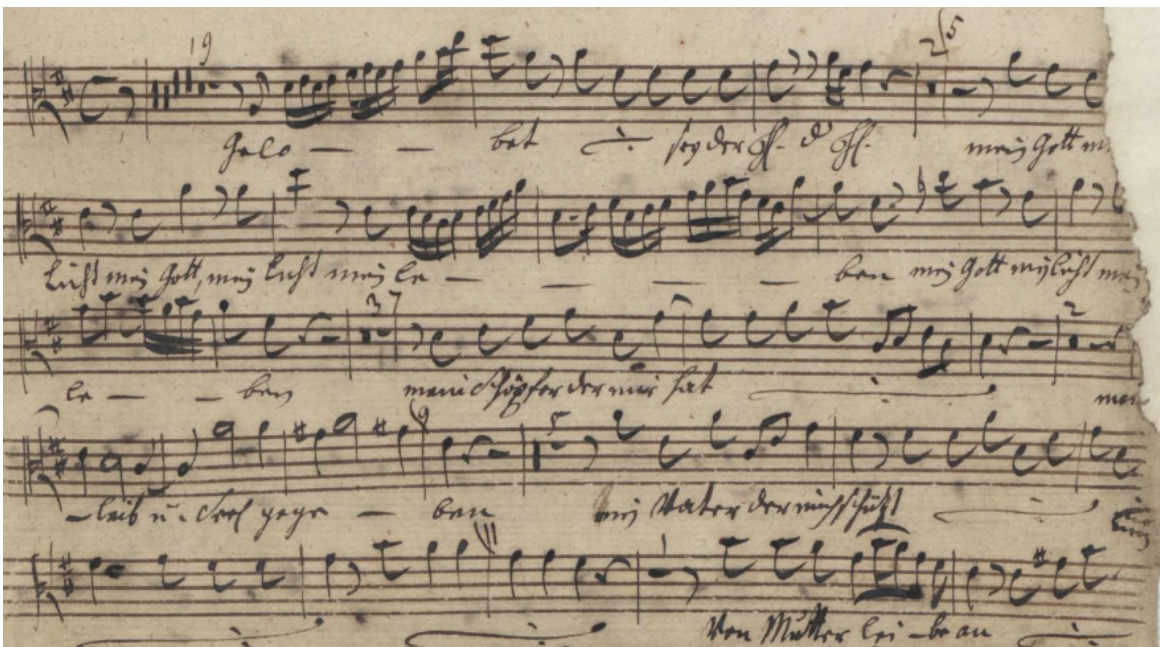 19 25
Gelo - - - bet seyder H. d H. mein Gott m
licht mein Gott, mein licht mein le - - - - ben mein Gott mein licht mein
37 2
le - - ben mein Schöpfer der mir hat mein
- leib u. Seel gege - ben mein Vater der mich schützt
Von Mutter lei - be an